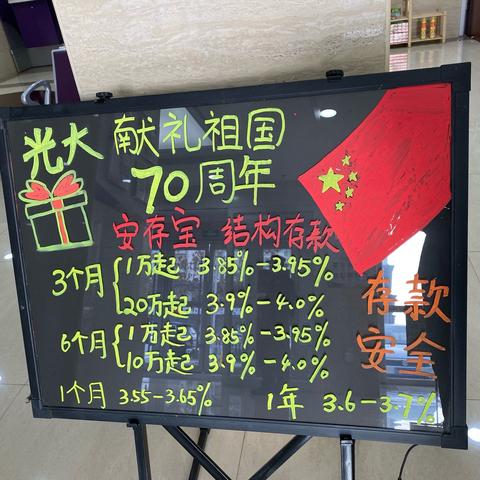 光大 献礼祖国
70周年
安存宝 结构存款
3个月 1万起 3.85%-3.95%
20万起 3.9%-4.0%
6个月 1万起 3.85%-3.95%
10万起 3.9%-4.0%
1个月 3.55-3.65% 1年 3.6-3.7%
存款
安全